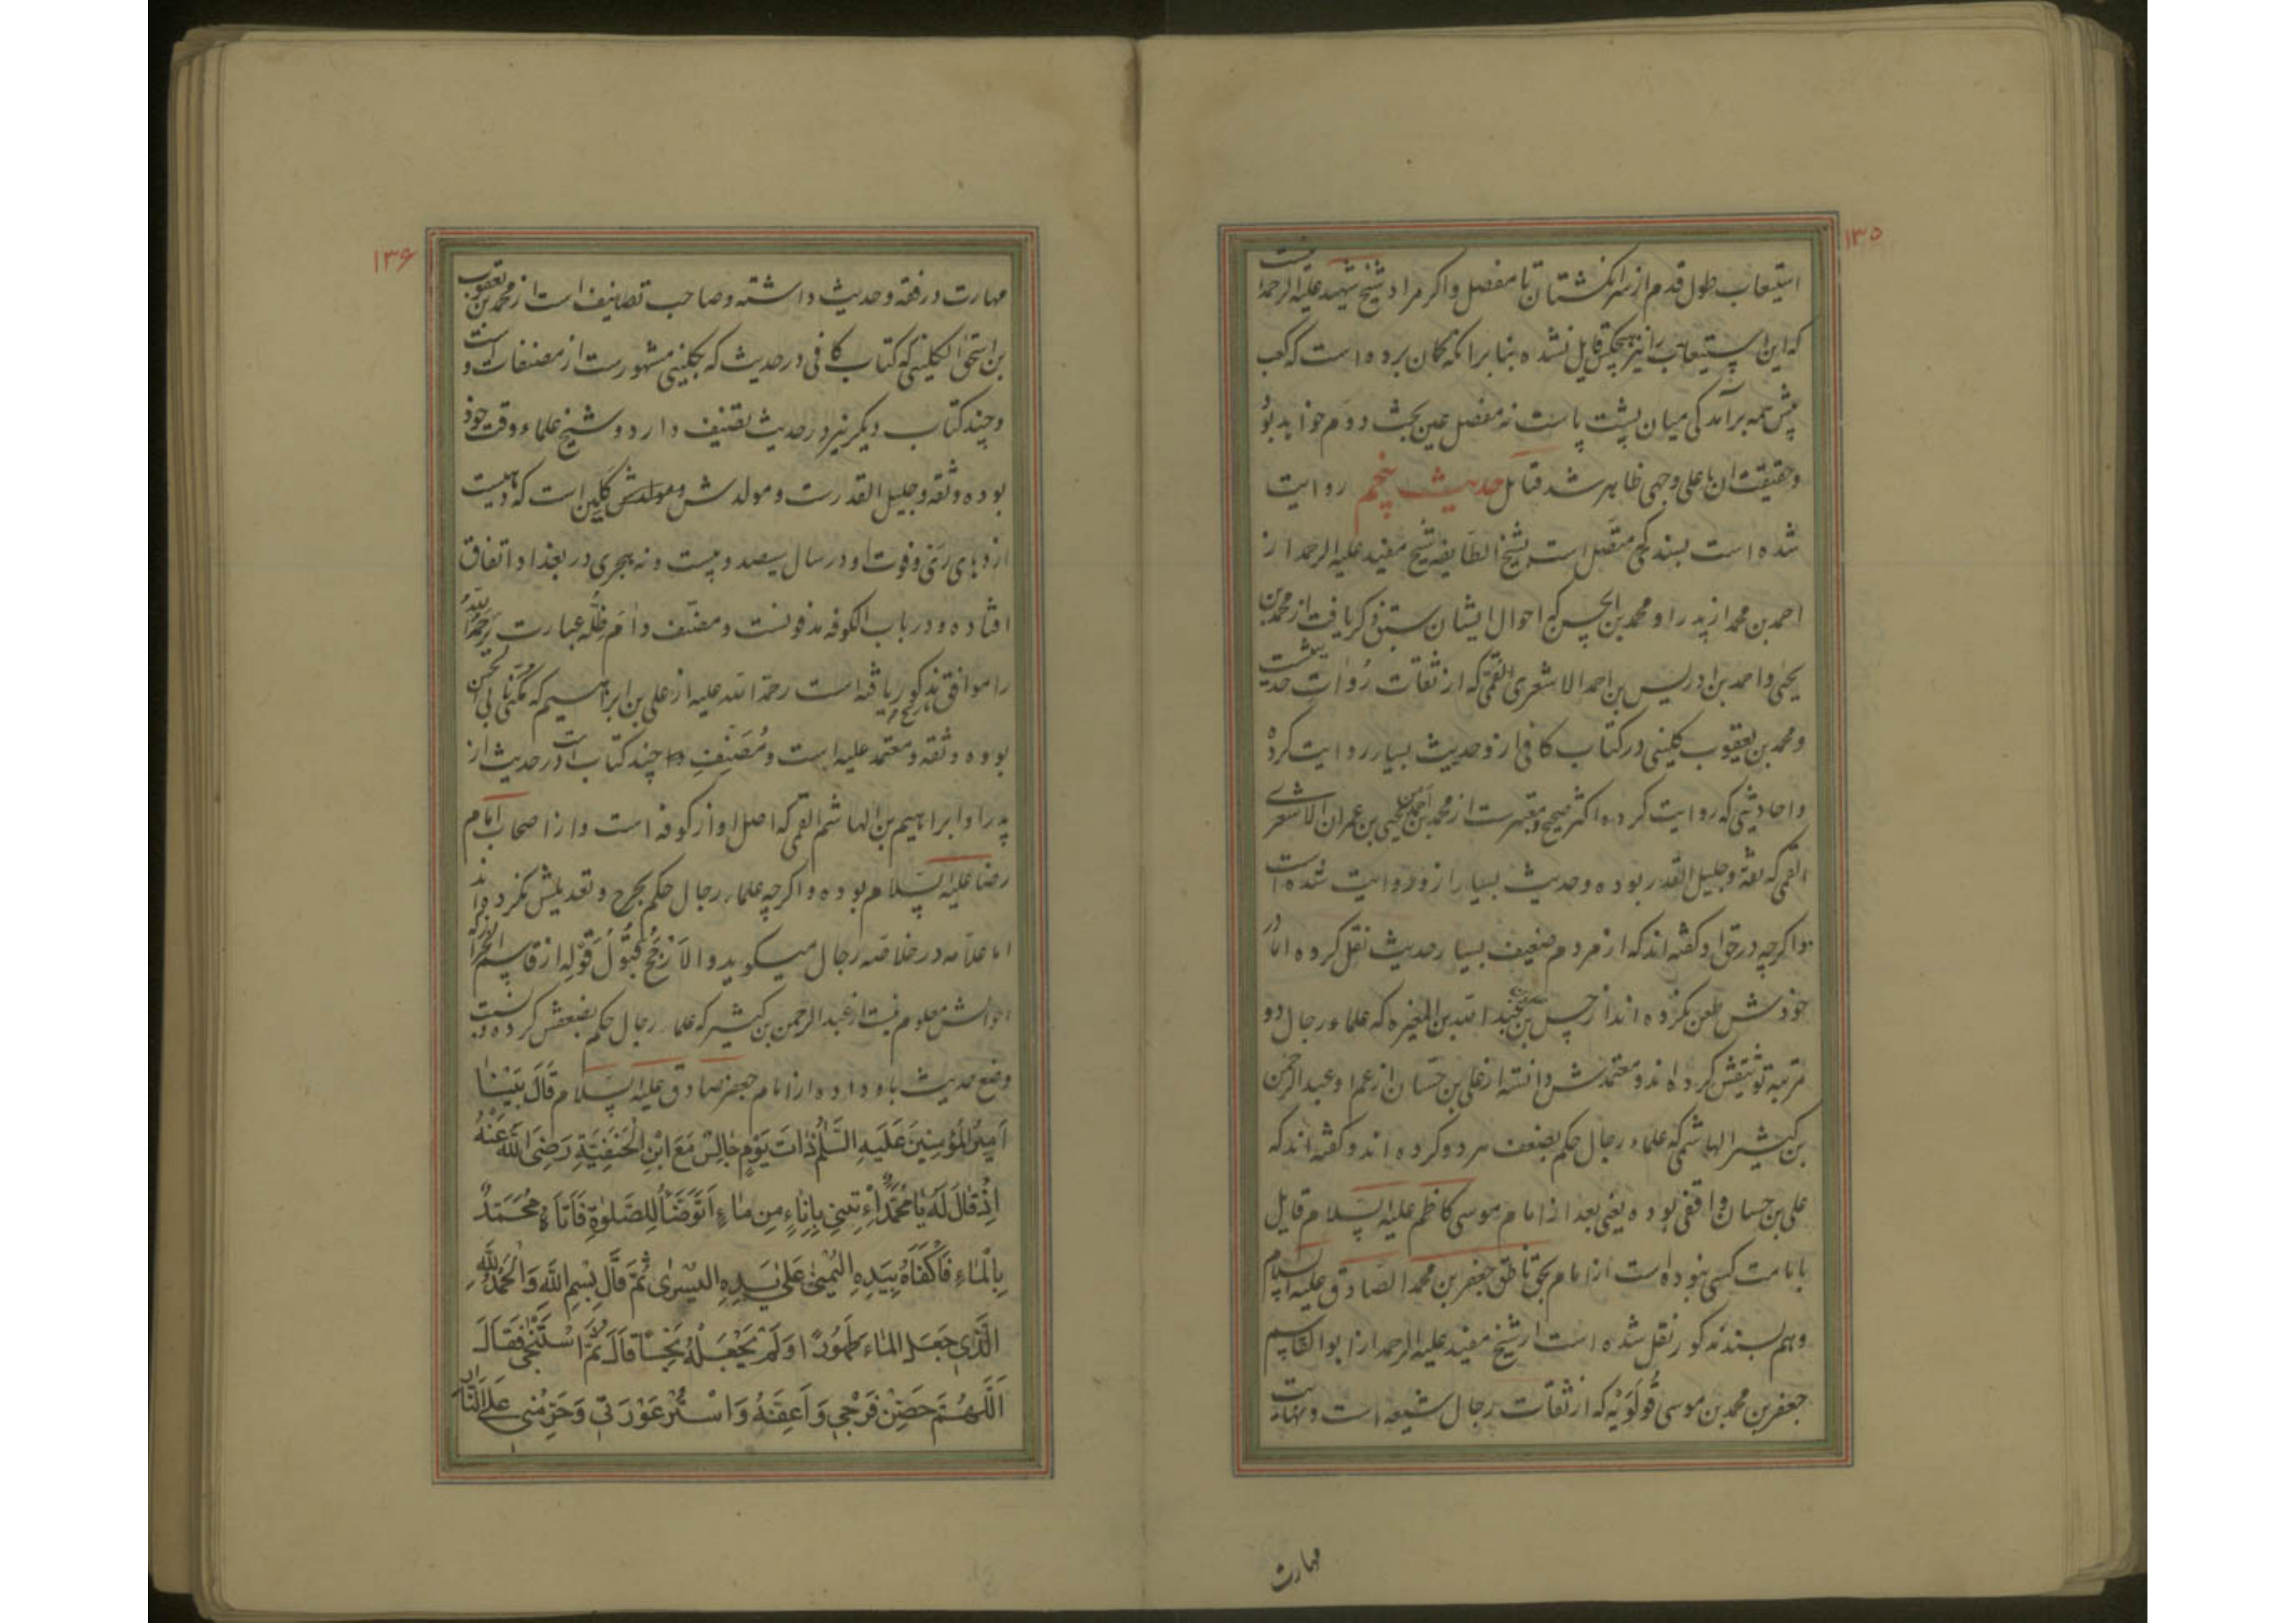 ۱۳۵
استیعاب طول قدم از سر انگشتان تا مفصل و اکر مراد شیخ شهید علیه الرحمة نیست
که این استیعاب را نیز هیچکس قایل نشده بنابرانکه کمان برده است که کعب
پیش همه برآمدکی میان پشت پاست نه مفصل عین بحث دوم خواهد بود
وحقیقت ان با علی وجهی ظاهر شد فتامل حدیث پنجم روایت
شده است بسند کی متصل است بشیخ الطایفه شیخ مفید علیه الرحمه از
احمد بن محمد از پدر او محمد بن الحسن که احوال ایشان سبق ذکر یافت از محمد بن
یحیی و احمد بن ادریس بن احمد الاشعری القمی که از ثقات رُوات حدیثست
ومحمد بن یعقوب کلینی در کتاب کافی از و حدیث بسیار روایت کرده
واحادیثی که روایت کرده اکثر صحیح و معتبرست از محمد بن احمد بن یحیی بن عمران الاشعری
القمی که ثقه و جلیل القدر بوده وحدیث بسیار از و روایت شده است
واکرچه در حق او کفته اند که از مردم ضعیف بسیار حدیث نقل کرده اما در
خودش طعن نکرده اند از حسن بن علی بن عبد الله بن المغیره که علماء رجال دو
مرتبه توثیقش کرده اند و معتمدش دانسته از علی بن حسّان از عم او عبد الرحمن
بن کثیر الهاشمی که علماء رجال حکم بضعف هر دو کرده اند و کفته اند که
علی بن حسان واقفی بوده یعنی بعد از امام موسی کاظم علیه السلام قایل
بامامت کسی نبوده است از امام بحق ناطق جعفر بن محمد الصادق علیه السلام
وهم بسند مذکور نقل شده است از شیخ مفید علیه الرحمه از ابو القاسم
جعفر بن محمد بن موسی قُولَوَیْه که از ثقات رجال شیعه است و نهایت
مهارت
۱۳۶
مهارت در فقه و حدیث داشته وصاحب تصانیف است از محمد بن یعقوب
بن اسحق الکلینی که کتاب کافی در حدیث که بکلینی مشهورست از مصنفات اوست و
وچند کتاب دیکر نیز در حدیث تصنیف دارد و شیخ علماء وقت خود
بوده وثقه وجلیل القدرست و مولدش و مولدش کلین است که دهیست
از دهای ری و فوت او در سال سیصد و بیست و نه هجری در بغداد اتفاق
افتاده و در باب الکوفه مدفونست و مصنّف دام ظلّه عبارت یرحمه الله
را موافق تاریخ مذکور یافته است رحمة الله علیه از علی بن ابراهیم که مُکنّی بابی الحسن
بوده و ثقه و معتمد علیه است و مُصَنِّفِ چند کتاب است در حدیث از
پدر او ابراهیم بن الهاشم القمی که اصل او از کوفه است واز اصحاب امام
رضا علیه السلام بوده و اکرچه علماء رجال حکم بجرح و تعدیلش نکرده اند
اما علامه در خلاصه رجال میکوید و الاَرْجَحُ قبُولُ قَوْلِه از قاسم الخراز که
احوالش معلوم نیست از عبد الرحمن بن کثیر که علماء رجال حکم بضعفش کرده و نسبت
وضع حدیث باو داده از امام جعفر صادق علیه السلام قَالَ بَیْنَا
اَمِیرُ المُؤْمِنِینَ عَلَیهِ السَّلٰمُ ذاتَ یَوْمٍ جالِسٌ مَعَ ابْنِ الْحَنَفِیَّةِ رَضِیَ اللهُ عَنْهُ
اِذْ قالَ لَهُ یا مُحَمَّدُ اِءْتِنِی بِاِنَاءٍ مِن ماءٍ اَتَوَضَّأُ لِلصَّلٰوةِ فَاَتاهُ مُحَمَّدٌ
بِالْمَاءِ فَاَکْفَاَهُ بِیَدِهِ الیُمنیٰ عَلیٰ یَدِهِ الیُسْریٰ ثُمَّ قَالَ بِسْمِ اللهِ وَالْحَمْدُ لِلّٰهِ
الَّذِی جَعَلَ الماءَ طَهُورًا وَلَمْ یَجْعَلْهُ نَجِسًا قَالَ ثُمَّ اسْتَنْجیٰ فَقَالَ
اَللّٰهُمَّ حَصِّنْ فَرْجِی وَاَعِفَّهُ وَاسْتُرْ عَوْرَتِی وَحَرِّمْنِی عَلَی النّارِ